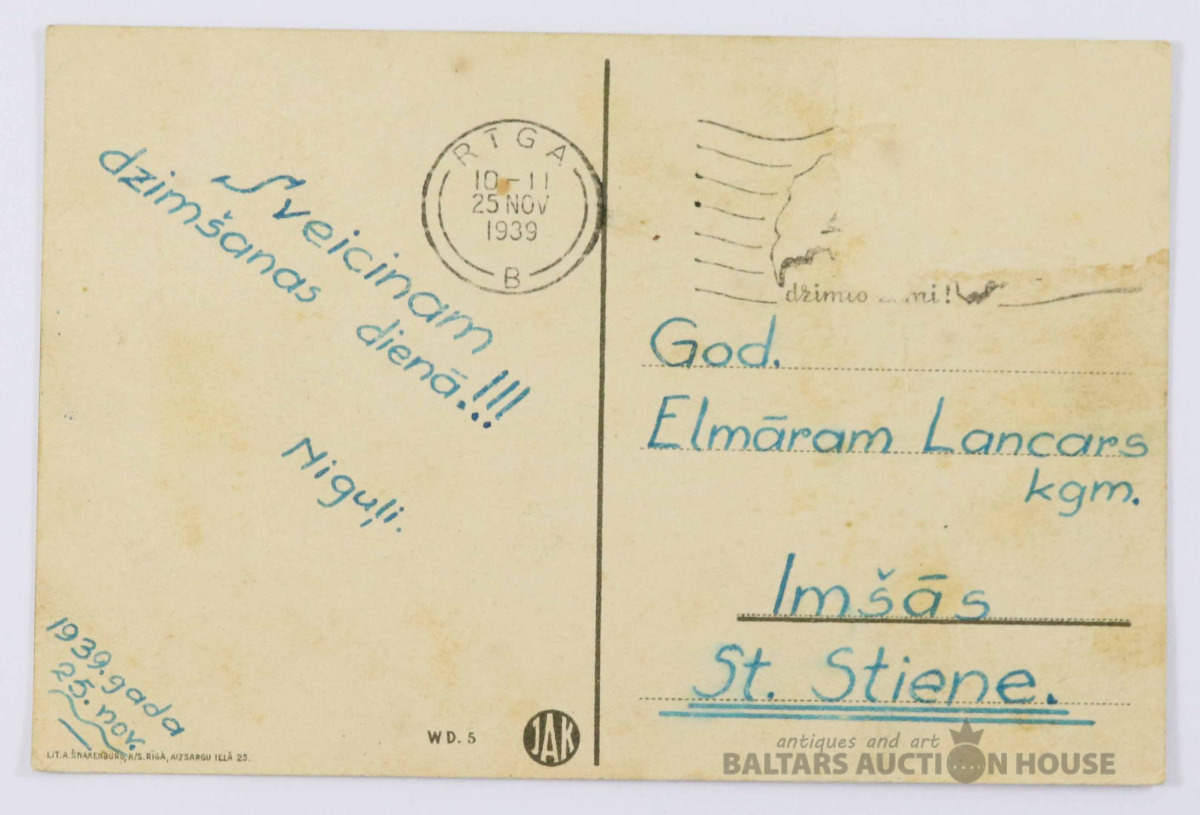 Sveicinam
dzimšanas dienā!!!
Niguļi.
1939. gada
25. nov.
LIT. A. ŠNAKENBURG, A/S. RĪGĀ, AIZSARGU IELĀ 23.
WD. 5
JAK
RĪGA
10-11
25 NOV
1939
B
God.
Elmāram Lancars
kgm.
Imšās
St. Stiene.
antiques and art
BALTARS AUCTION HOUSE